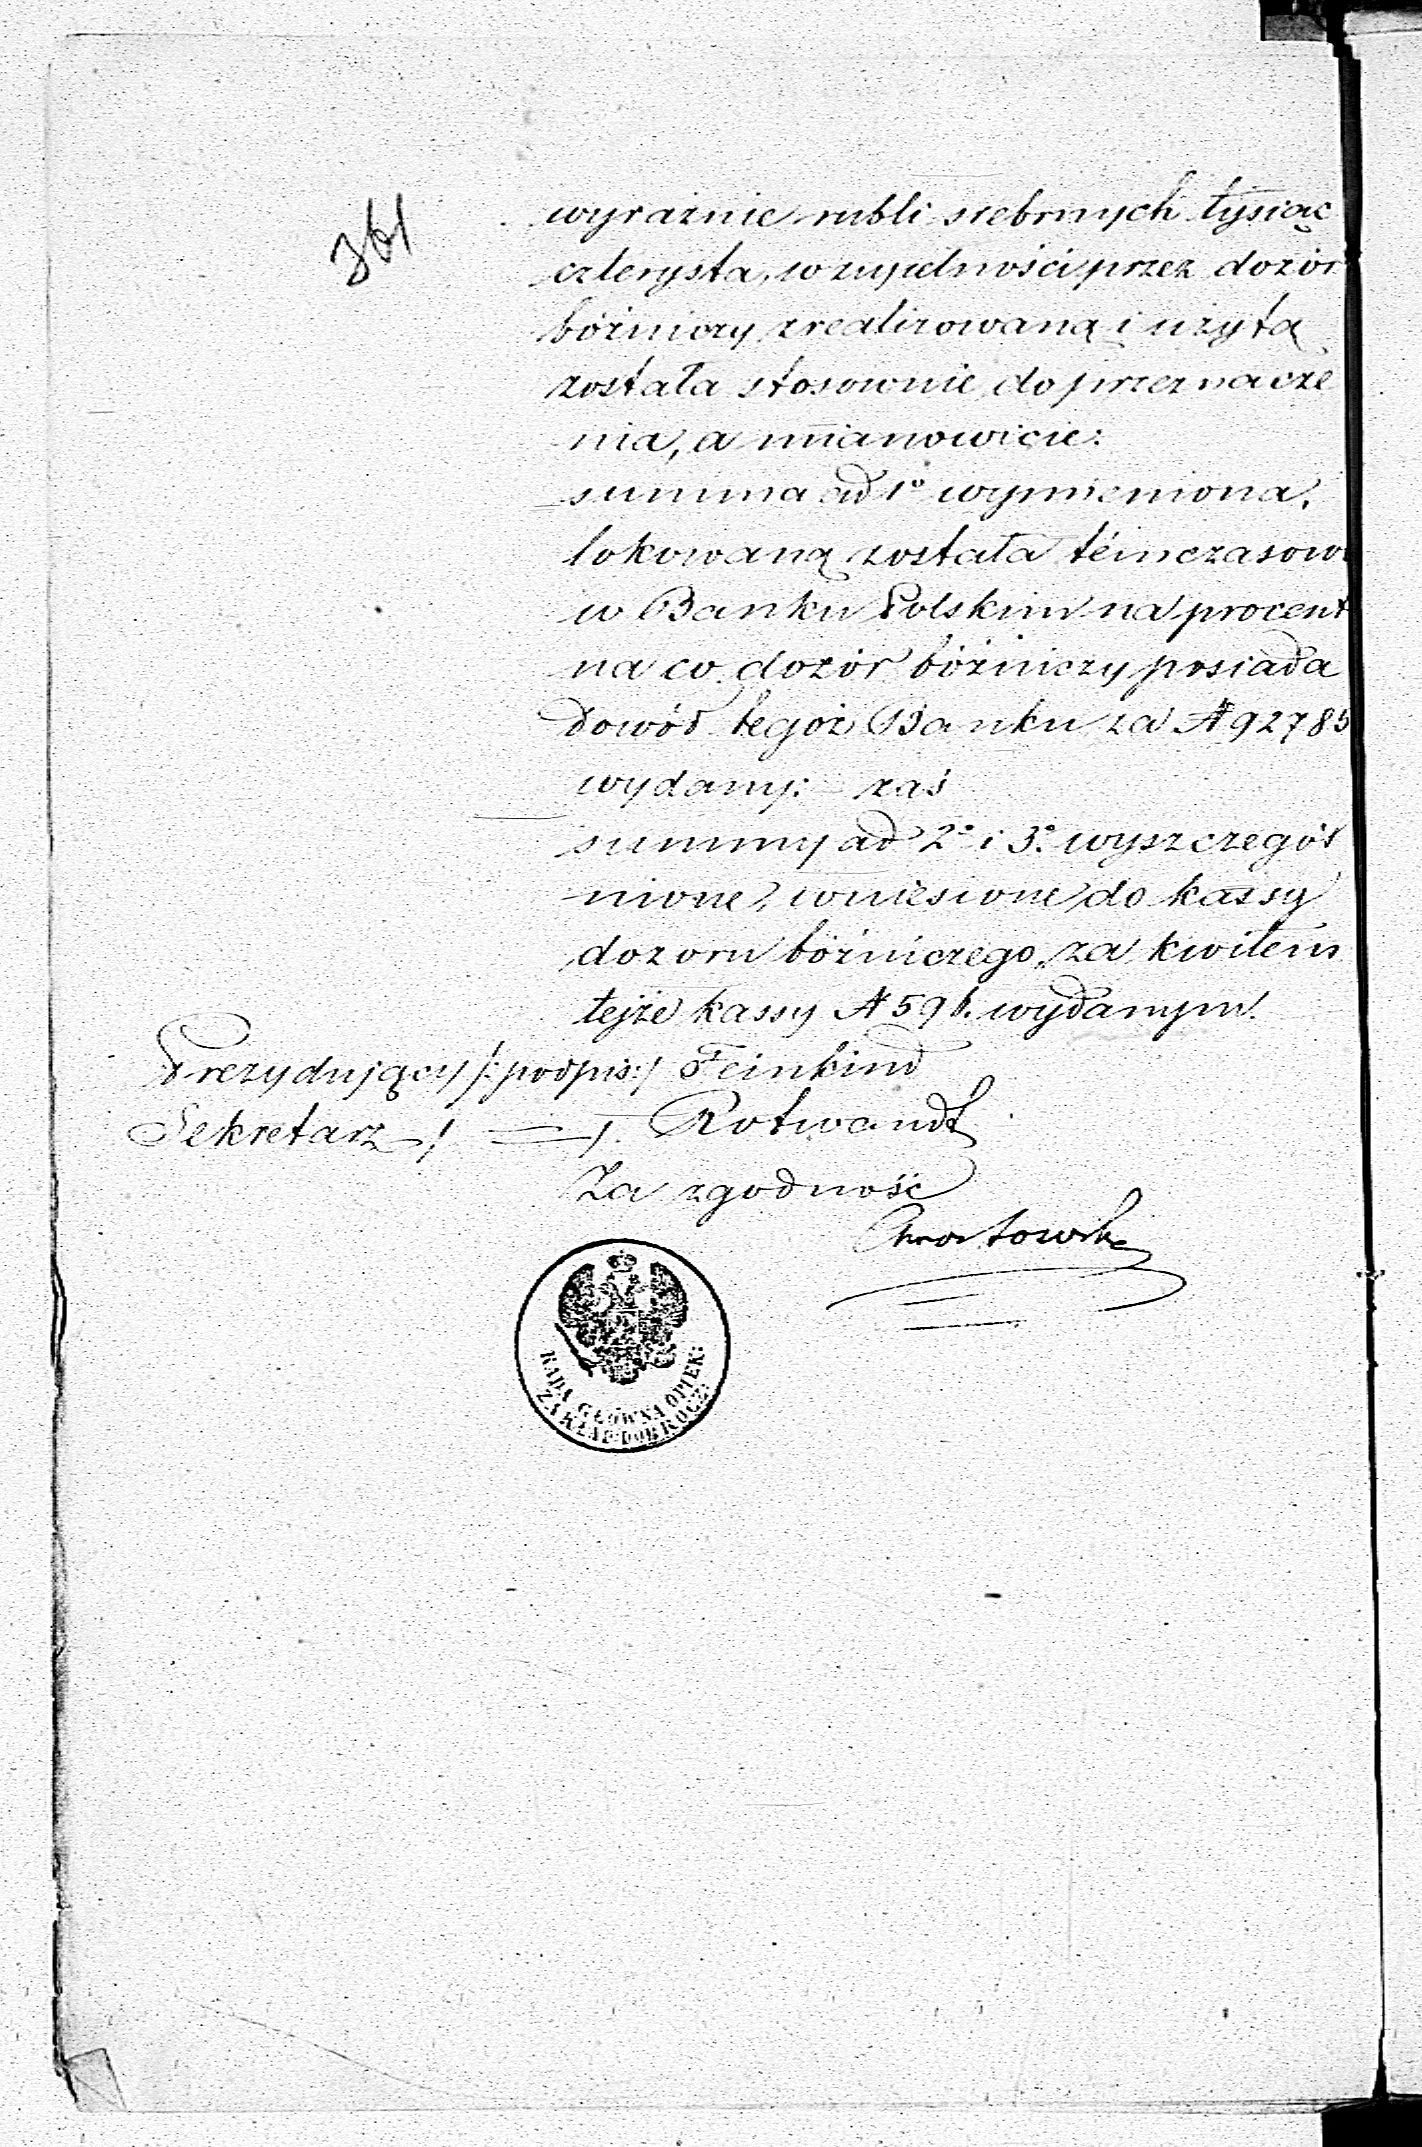 361
wyraźnie rubli srebrnych tysiąc
czterysta, w zupełności przez dozór
bóżniczy zrealizowaną i użytą
została stosownie do przeznacze
nia, a mianowicie:
summa ad 1o wymieniona,
lokowaną została témczasowo
w Banku Polskim na procent
na co dozór bóżniczy posiada
dowód tegoż Banku za N 92785
wydany: zaś
summy ad 2o i 3o wyszczegól
nione, wniesione do kassy
dozoru bóżniczego, za kwitem
tejże kassy N 591. wydanym.
Prezydujący /:podpis:/ Feinkind
Sekretarz / = /. Rotwandt
Za zgodność
RADA GŁÓWNA OPIEK:
ZAKŁAD: DOBROCZ: